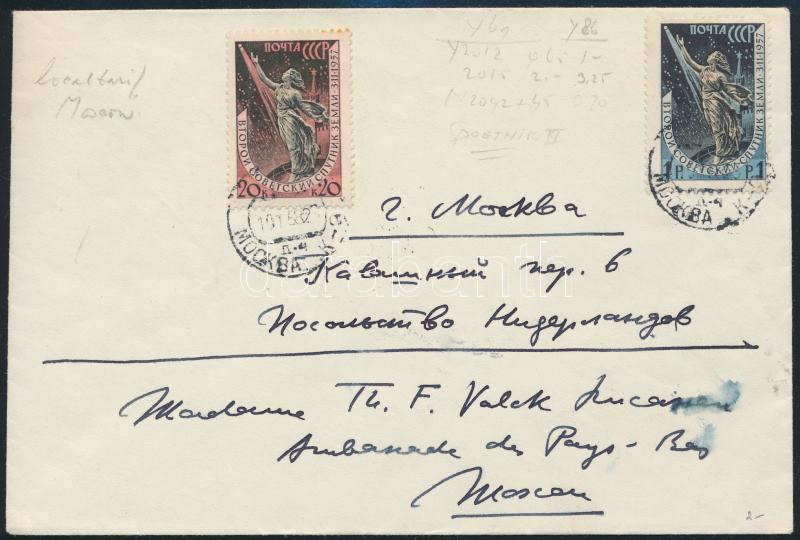 ПОЧТА СССР
ВТОРОЙ СОВЕТСКИЙ СПУТНИК ЗЕМЛИ 3·XI·1957
20 К К 20
ПОЧТА СССР
ВТОРОЙ СОВЕТСКИЙ СПУТНИК ЗЕМЛИ 3·XI·1957
1 Р. Р. 1
local tarif
Moscow
y 69 y 86
Y2012 0 65 1-
2015 2.- 3,25
M2042+45 0 70
Spoetnik II
МОСКВА
Д-4
МОСКВА
Д-4
г. Москва
Калашный пер. 6
Посольство Нидерландов
darabanth
Madame Th. F. Valck Lucassen
Ambassade des Pays-Bas
Moscou
2-